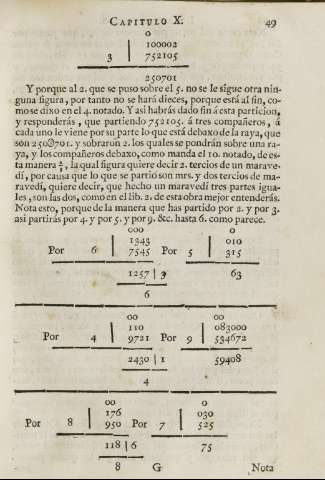 CAPITULO X. 49
0
100002
3 | 752105
250701
Y porque al 2. que se puso sobre el 5. no se le sigue otra nin-
guna figura, por tanto no se hará dieces, porque está al fin, co-
mo se dixo en el 4. notado. Y asi habrás dado fin á esta particion,
y responderás, que partiendo 752105. á tres compañeros, á
cada uno le viene por su parte lo que está debaxo de la raya, que
son 250@701. y sobraron 2. los quales se pondrán sobre una ra-
ya, y los compañeros debaxo, como manda el 10. notado, de es-
ta manera 2/3, la qual figura quiere decir 2. tercios de un marave-
dí, por causa que lo que se partió son mrs. y dos tercios de ma-
ravedí, quiere decir, que hecho un maravedí tres partes igua-
les, son las dos, como en el lib. 2. de esta obra mejor entenderás.
Nota esto, porque de la manera que has partido por 2. y por 3.
asi partirás por 4. y por 5. y por 9. &c. hasta 6. como parece.
000 0
1343 010
Por 6 | 7545 Por 5 | 315
1257 | 3 63
6
00 00
110 083000
Por 4 | 9721 Por 9 | 534672
2430 | 1 59408
4
00 0
176 030
Por 8 | 950 Por 7 | 525
118 | 6 75
8 G Nota